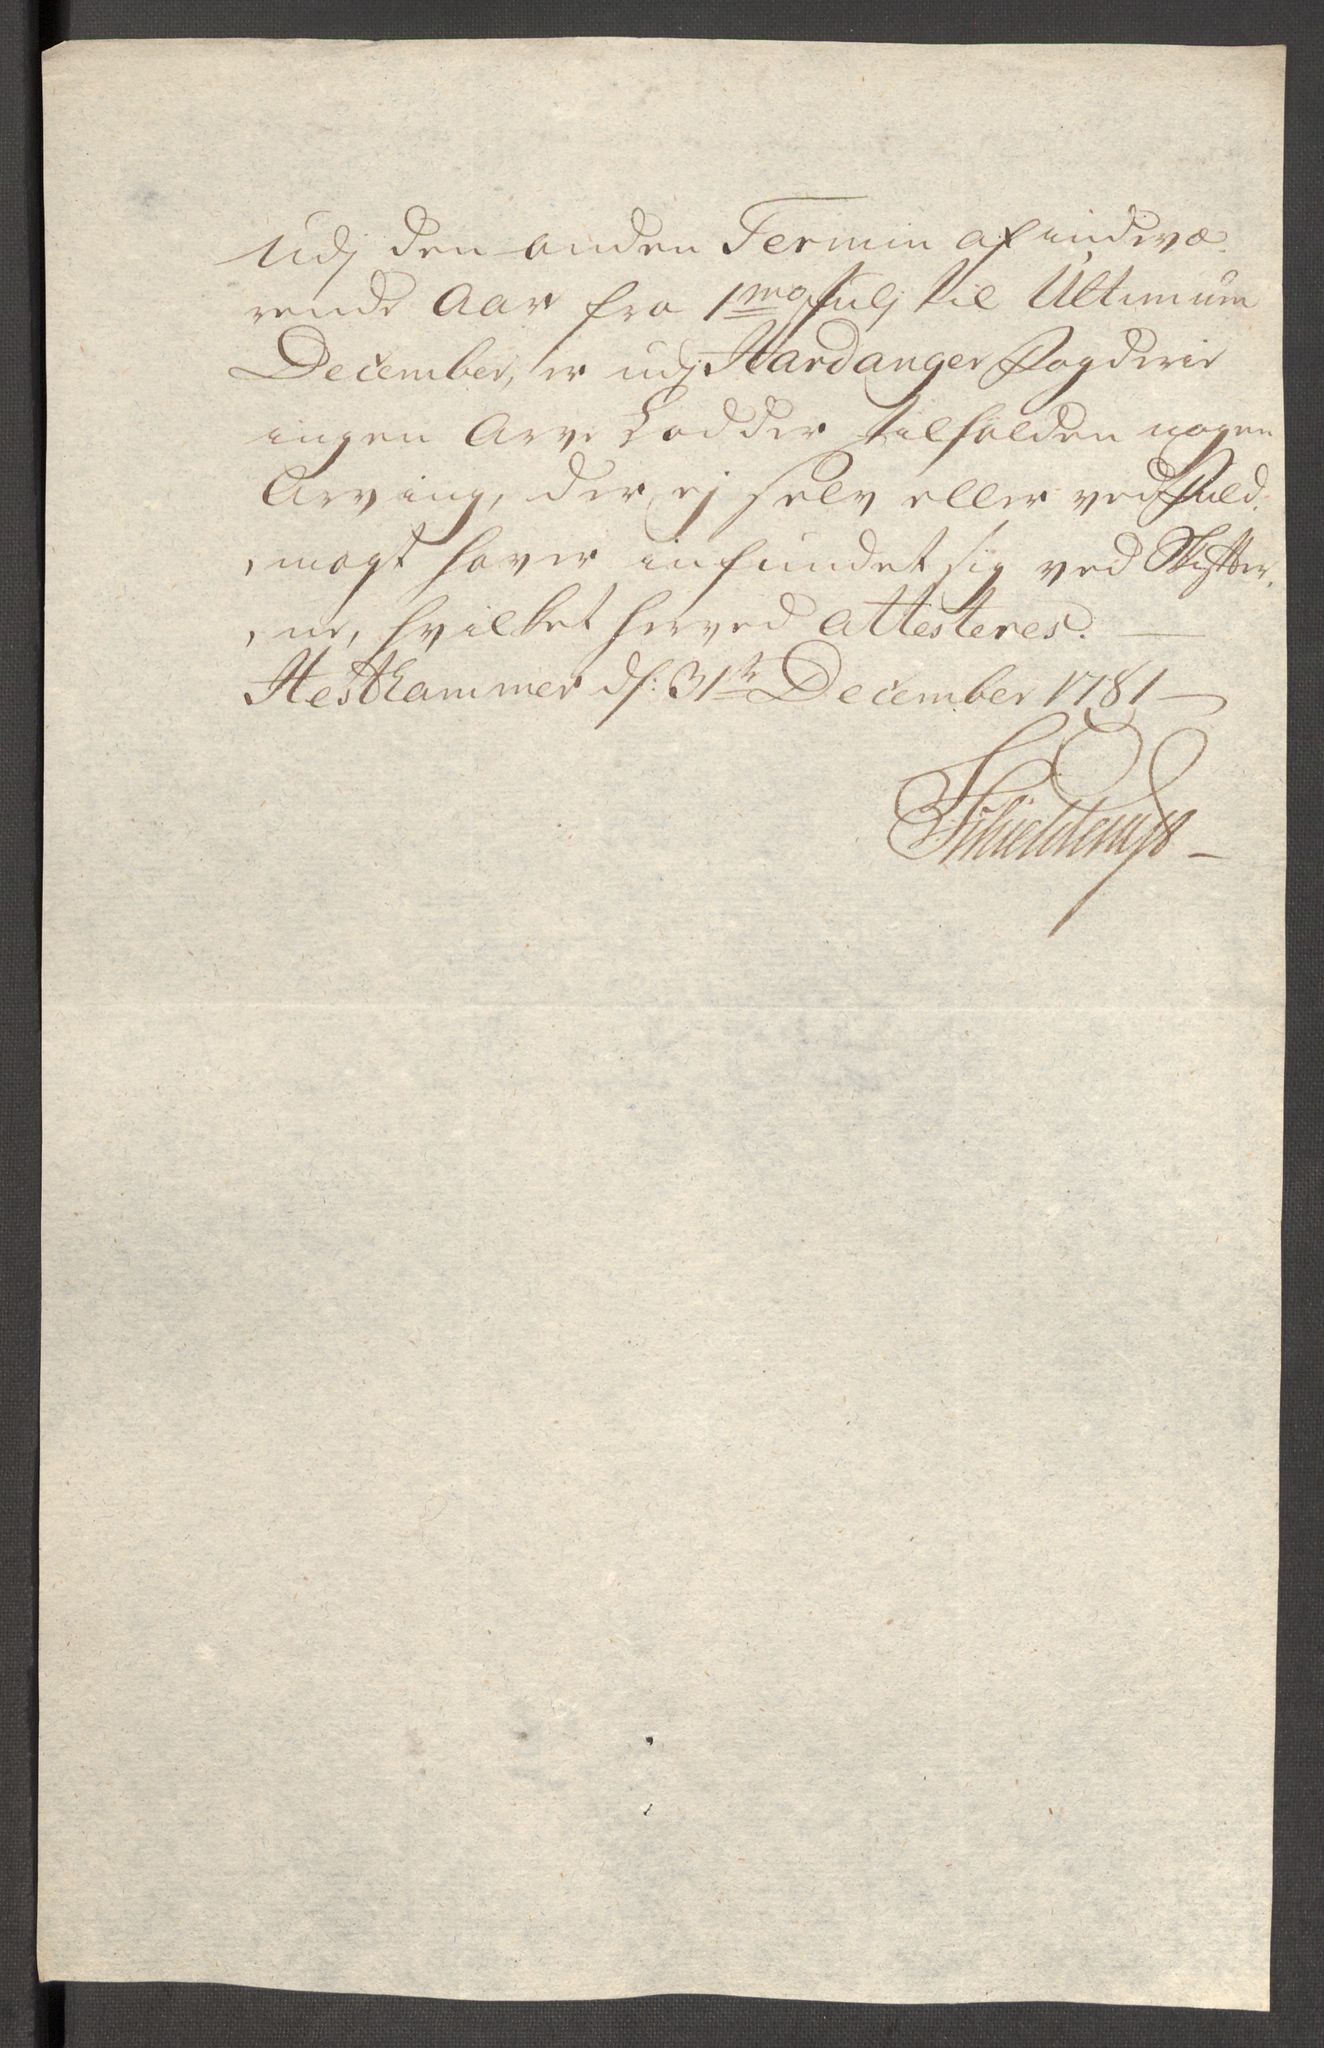 Udj den anden Termin af indevæ
rende Aar fra 1mo Julj til Ultimum
December, er udj Hardanger Fogderie
ingen Arve Lodder tilfalden nogen
Arving, der ej selv eller ved Fuld-
magt haver infundet sig ved Skifter,
,ne, hvilket herved Attesteres.
Hesthammer d: 31te December 1781